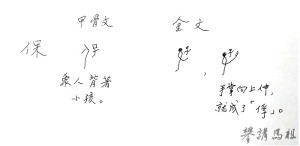 甲骨文
金文
保
象人背著
小孩。
手臂向上伸,
就成了「俘」。
舉講馬祖